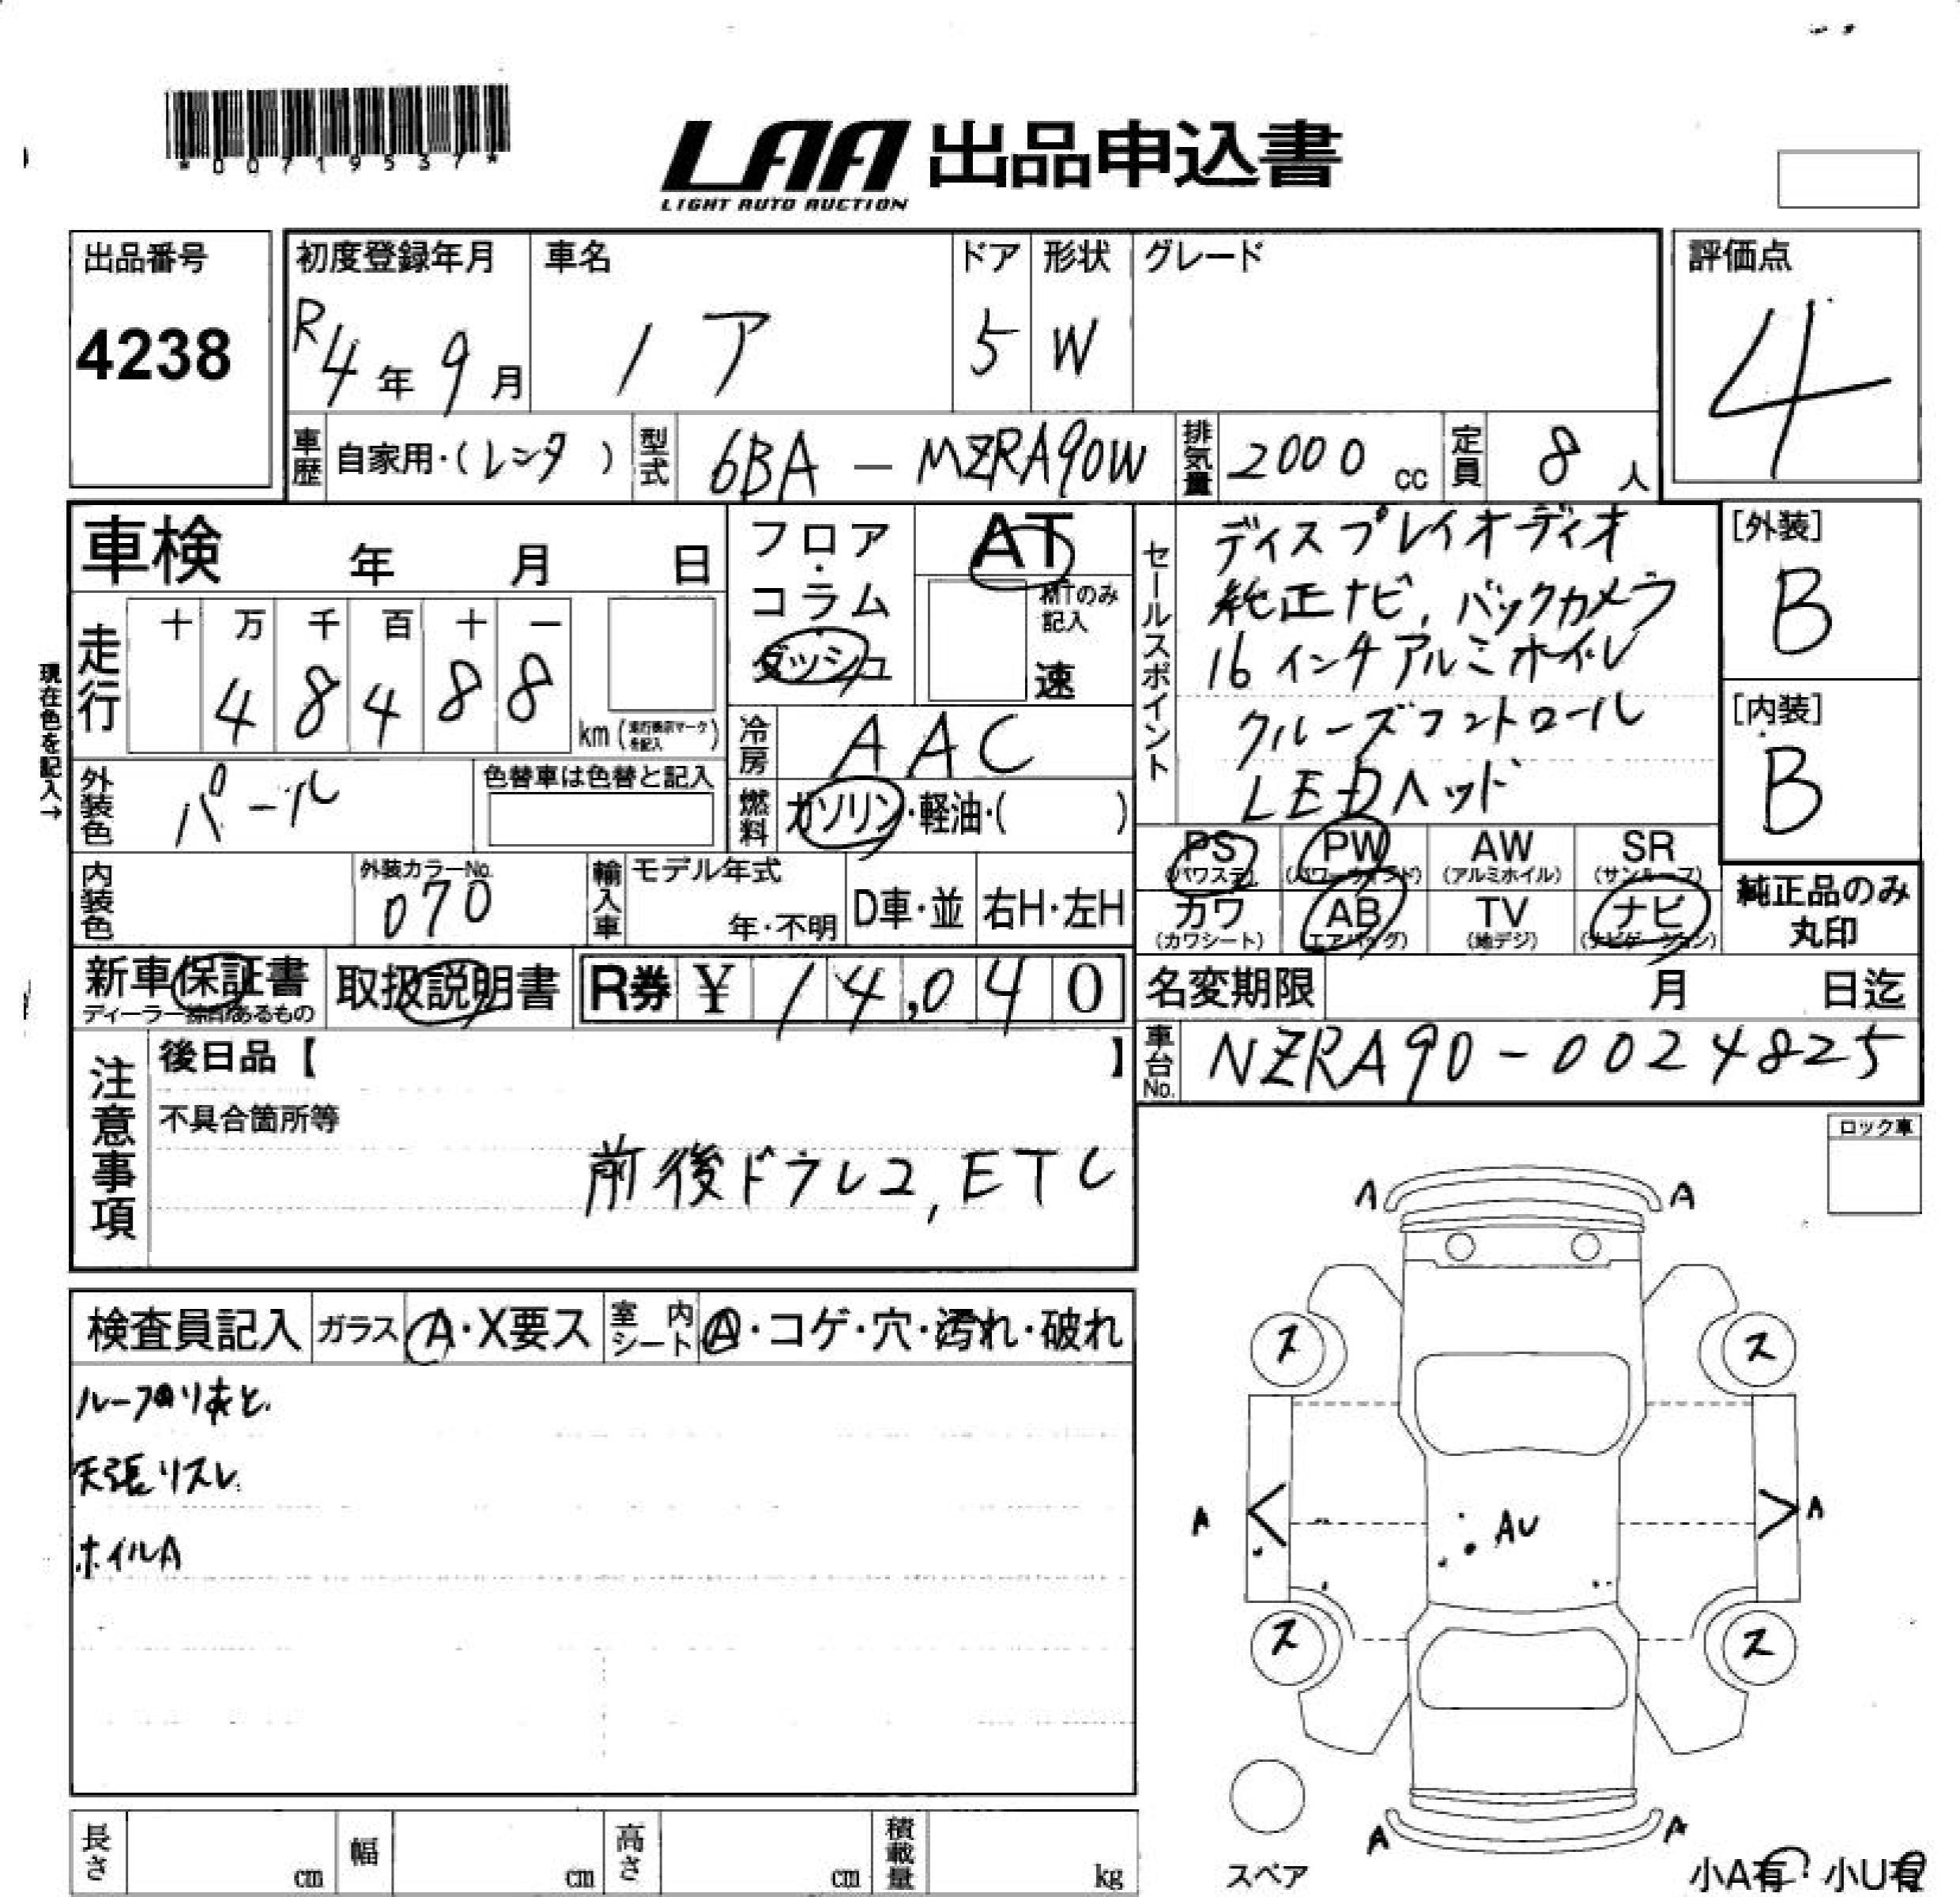 *00719537*
LAA 出品申込書
LIGHT AUTO AUCTION
出品番号
4238
初度登録年月
R4年9月
車名
ノア
ドア
5
形状
W
グレード
評価点
4
車歴 自家用・(レンタ)
型式 6BA-MZRA90W
排気量 2000cc
定員 8人
車検 年 月 日
走行 十 万 千 百 十 一
4 8 4 8 8
km(走行表示マークを記入)
現在色を記入→
外装色 パール
色替車は色替と記入
内装色
外装カラーNo.
070
フロア・コラム・ダッシュ
AT
MTのみ記入
速
冷房 AAC
燃料 ガソリン・軽油・( )
輸入車 モデル年式
年・不明
D車・並
右H・左H
新車保証書
取扱説明書
R券 ¥14,040
セールスポイント
ディスプレイオーディオ
純正ナビ, バックカメラ
16インチアルミホイル
クルーズコントロール
LEDヘッド
[外装]
B
[内装]
B
PS (パワステ)
PW (パワーウィンド)
AW (アルミホイル)
SR (サンルーフ)
カワ (カワシート)
AB (エアバッグ)
TV (地デジ)
ナビ (ナビゲーション)
純正品のみ丸印
名変期限 月 日迄
車台No. NZRA90-0024825
注意事項
後日品【 】
不具合箇所等
前後ドラレコ, ETC
ロック車
検査員記入
ガラス A・X要ス
室内シート A・コゲ・穴・汚れ・破れ
天張リスレ
ホイルA
A A
ス ス
A A
AU
ス ス
A A
スペア
小A有・小U有
長さ cm
幅 cm
高さ cm
積載量 kg